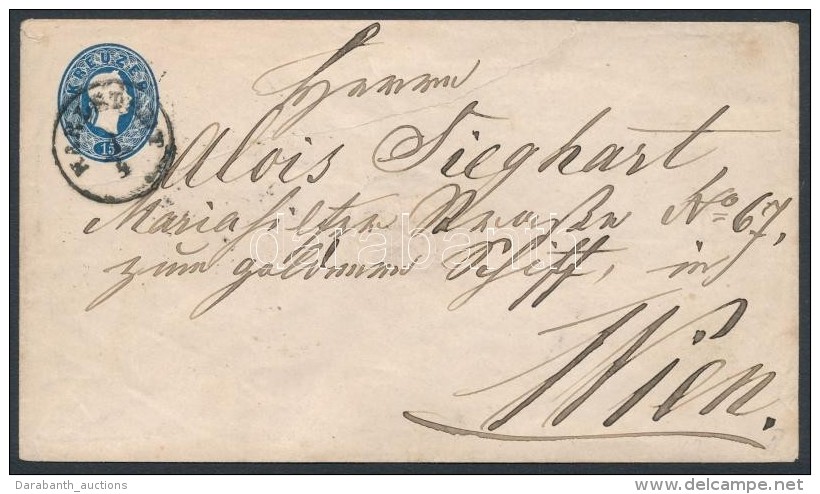 KREUZER
15
Herrn
Alois Sieghart
Mariahilfer Straße No 67,
zum goldenen Schiff, in
Wien.
darabanth
Darabanth_auctions
www.delcampe.net